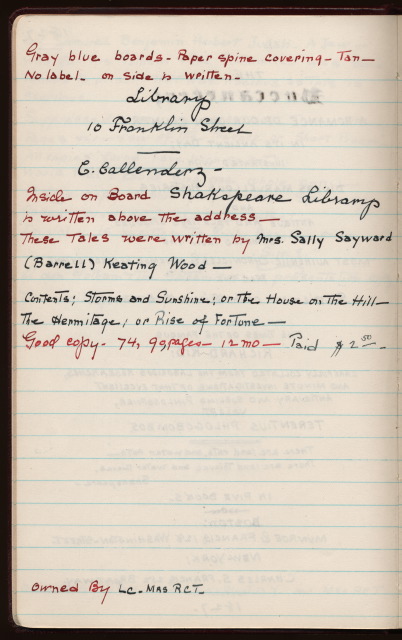 Gray blue boards - Paper spine covering - Tan -
No label - on side is written -
Library
10 Franklin Street
C. Callenderz -
Inside on Board Shakspeare Library
is written above the address -
These Tales were written by Mrs. Sally Sayward
(Barrell) Keating Wood -
Contents; Storms and Sunshine; or The House on The Hill -
The Hermitage, or Rise of Fortune -
Good copy - 74, 99 pages - 12 mo - Paid $ 2.50 -
Owned By LC. MAS RCT.